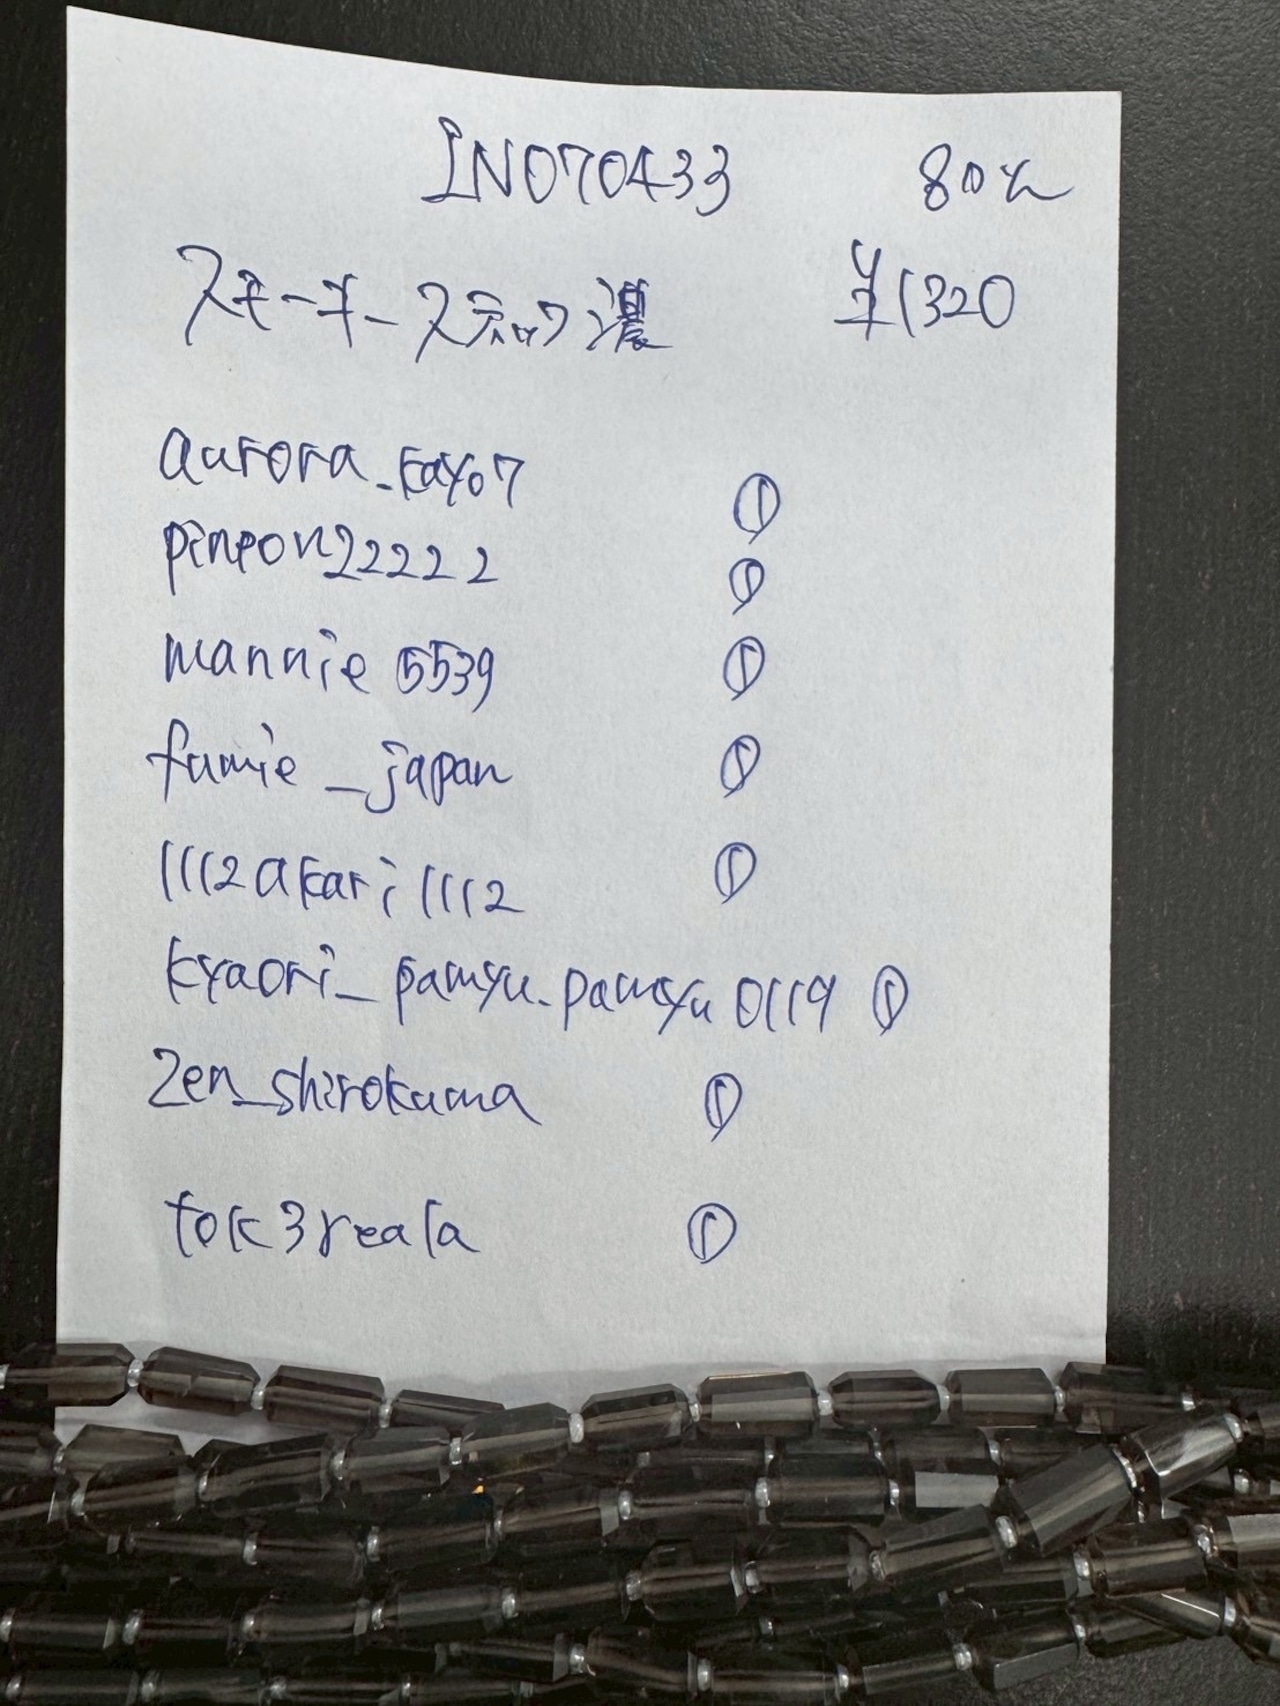 INO70433 80%
スモーキースティック濃 ¥1320
aurora_kayo7 ①
pinpon22222 ①
mannie5539 ①
fumie_japan ①
1112akari1112 ①
kyaori_pamyu.pamyu0119 ①
zen_shirokuma ①
tok3reala ①